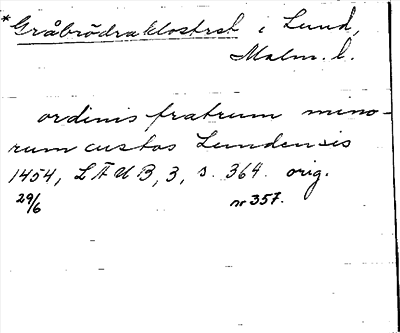 *Gråbrödraklostret i Lund,
Malm. l.
ordinis fratrum mino-
rum custos Lundensis
1454, LÄUB, 3, s. 364. orig.
29/6 nr 357.